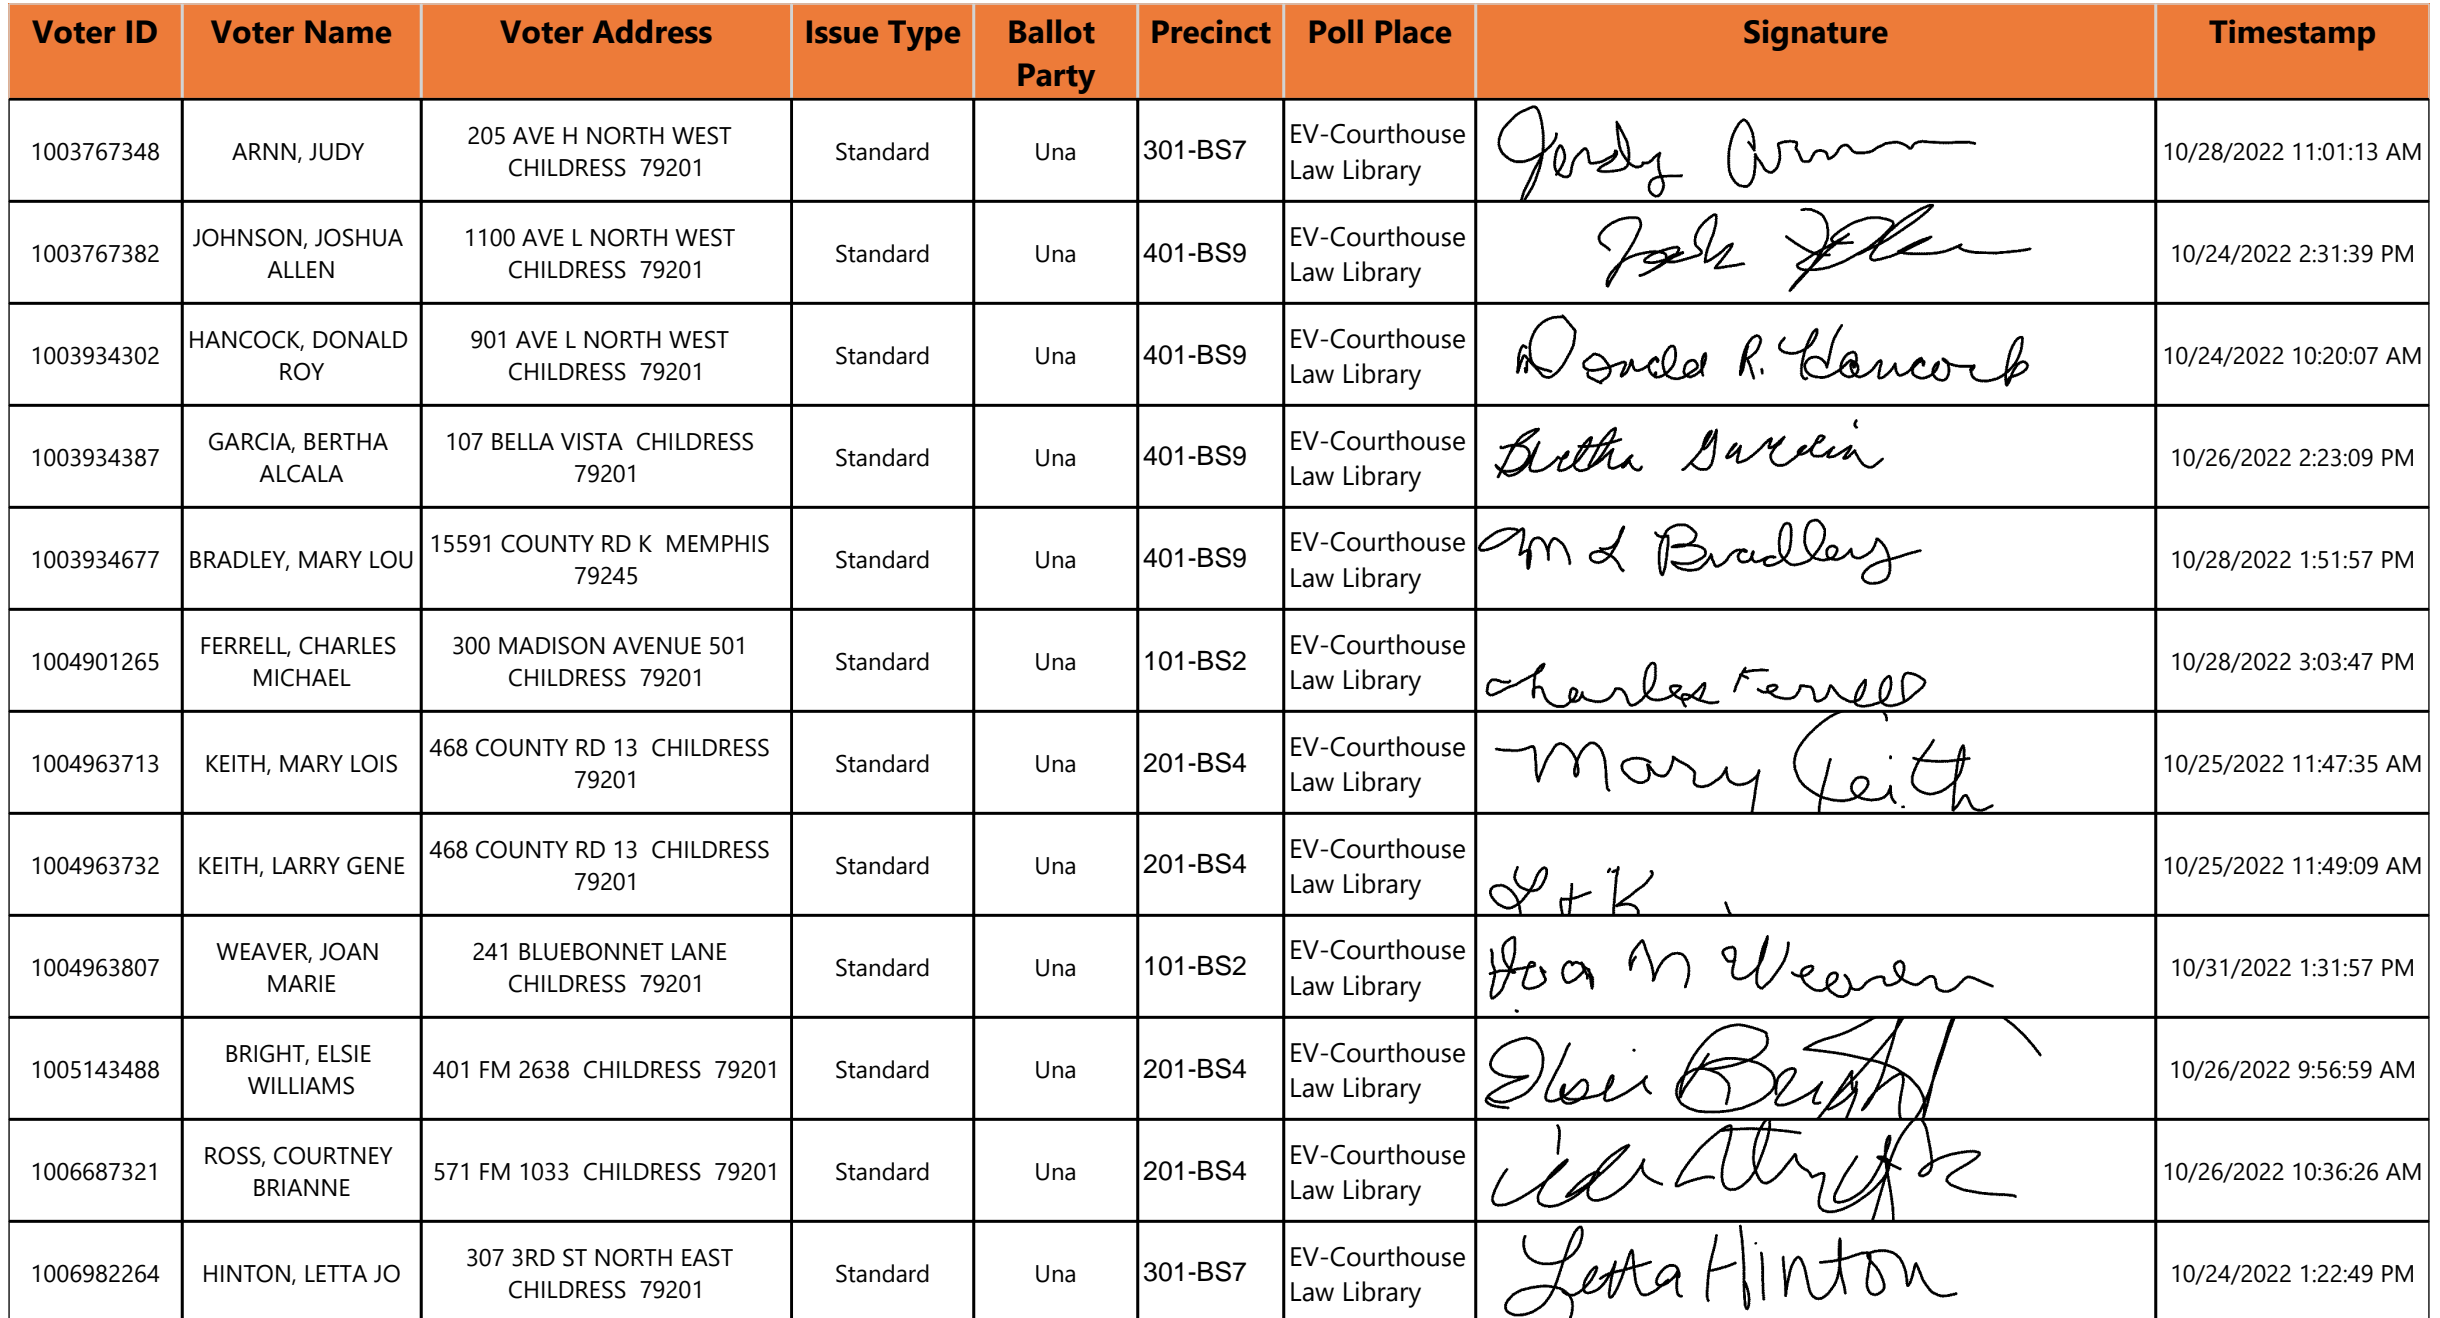 Voter ID Voter Name Voter Address Issue Type Ballot Party Precinct Poll Place Signature Timestamp
1003767348 ARNN, JUDY 205 AVE H NORTH WEST CHILDRESS 79201 Standard Una 301-BS7 EV-Courthouse Law Library Judy Arnn 10/28/2022 11:01:13 AM
1003767382 JOHNSON, JOSHUA ALLEN 1100 AVE L NORTH WEST CHILDRESS 79201 Standard Una 401-BS9 EV-Courthouse Law Library Josh 10/24/2022 2:31:39 PM
1003934302 HANCOCK, DONALD ROY 901 AVE L NORTH WEST CHILDRESS 79201 Standard Una 401-BS9 EV-Courthouse Law Library Donald R. Hancock 10/24/2022 10:20:07 AM
1003934387 GARCIA, BERTHA ALCALA 107 BELLA VISTA CHILDRESS 79201 Standard Una 401-BS9 EV-Courthouse Law Library Bertha Garcia 10/26/2022 2:23:09 PM
1003934677 BRADLEY, MARY LOU 15591 COUNTY RD K MEMPHIS 79245 Standard Una 401-BS9 EV-Courthouse Law Library M L Bradley 10/28/2022 1:51:57 PM
1004901265 FERRELL, CHARLES MICHAEL 300 MADISON AVENUE 501 CHILDRESS 79201 Standard Una 101-BS2 EV-Courthouse Law Library Charles Ferrell 10/28/2022 3:03:47 PM
1004963713 KEITH, MARY LOIS 468 COUNTY RD 13 CHILDRESS 79201 Standard Una 201-BS4 EV-Courthouse Law Library Mary Keith 10/25/2022 11:47:35 AM
1004963732 KEITH, LARRY GENE 468 COUNTY RD 13 CHILDRESS 79201 Standard Una 201-BS4 EV-Courthouse Law Library 10/25/2022 11:49:09 AM
1004963807 WEAVER, JOAN MARIE 241 BLUEBONNET LANE CHILDRESS 79201 Standard Una 101-BS2 EV-Courthouse Law Library Joan M Weaver 10/31/2022 1:31:57 PM
1005143488 BRIGHT, ELSIE WILLIAMS 401 FM 2638 CHILDRESS 79201 Standard Una 201-BS4 EV-Courthouse Law Library Elsie Bright 10/26/2022 9:56:59 AM
1006687321 ROSS, COURTNEY BRIANNE 571 FM 1033 CHILDRESS 79201 Standard Una 201-BS4 EV-Courthouse Law Library 10/26/2022 10:36:26 AM
1006982264 HINTON, LETTA JO 307 3RD ST NORTH EAST CHILDRESS 79201 Standard Una 301-BS7 EV-Courthouse Law Library Letta Hinton 10/24/2022 1:22:49 PM